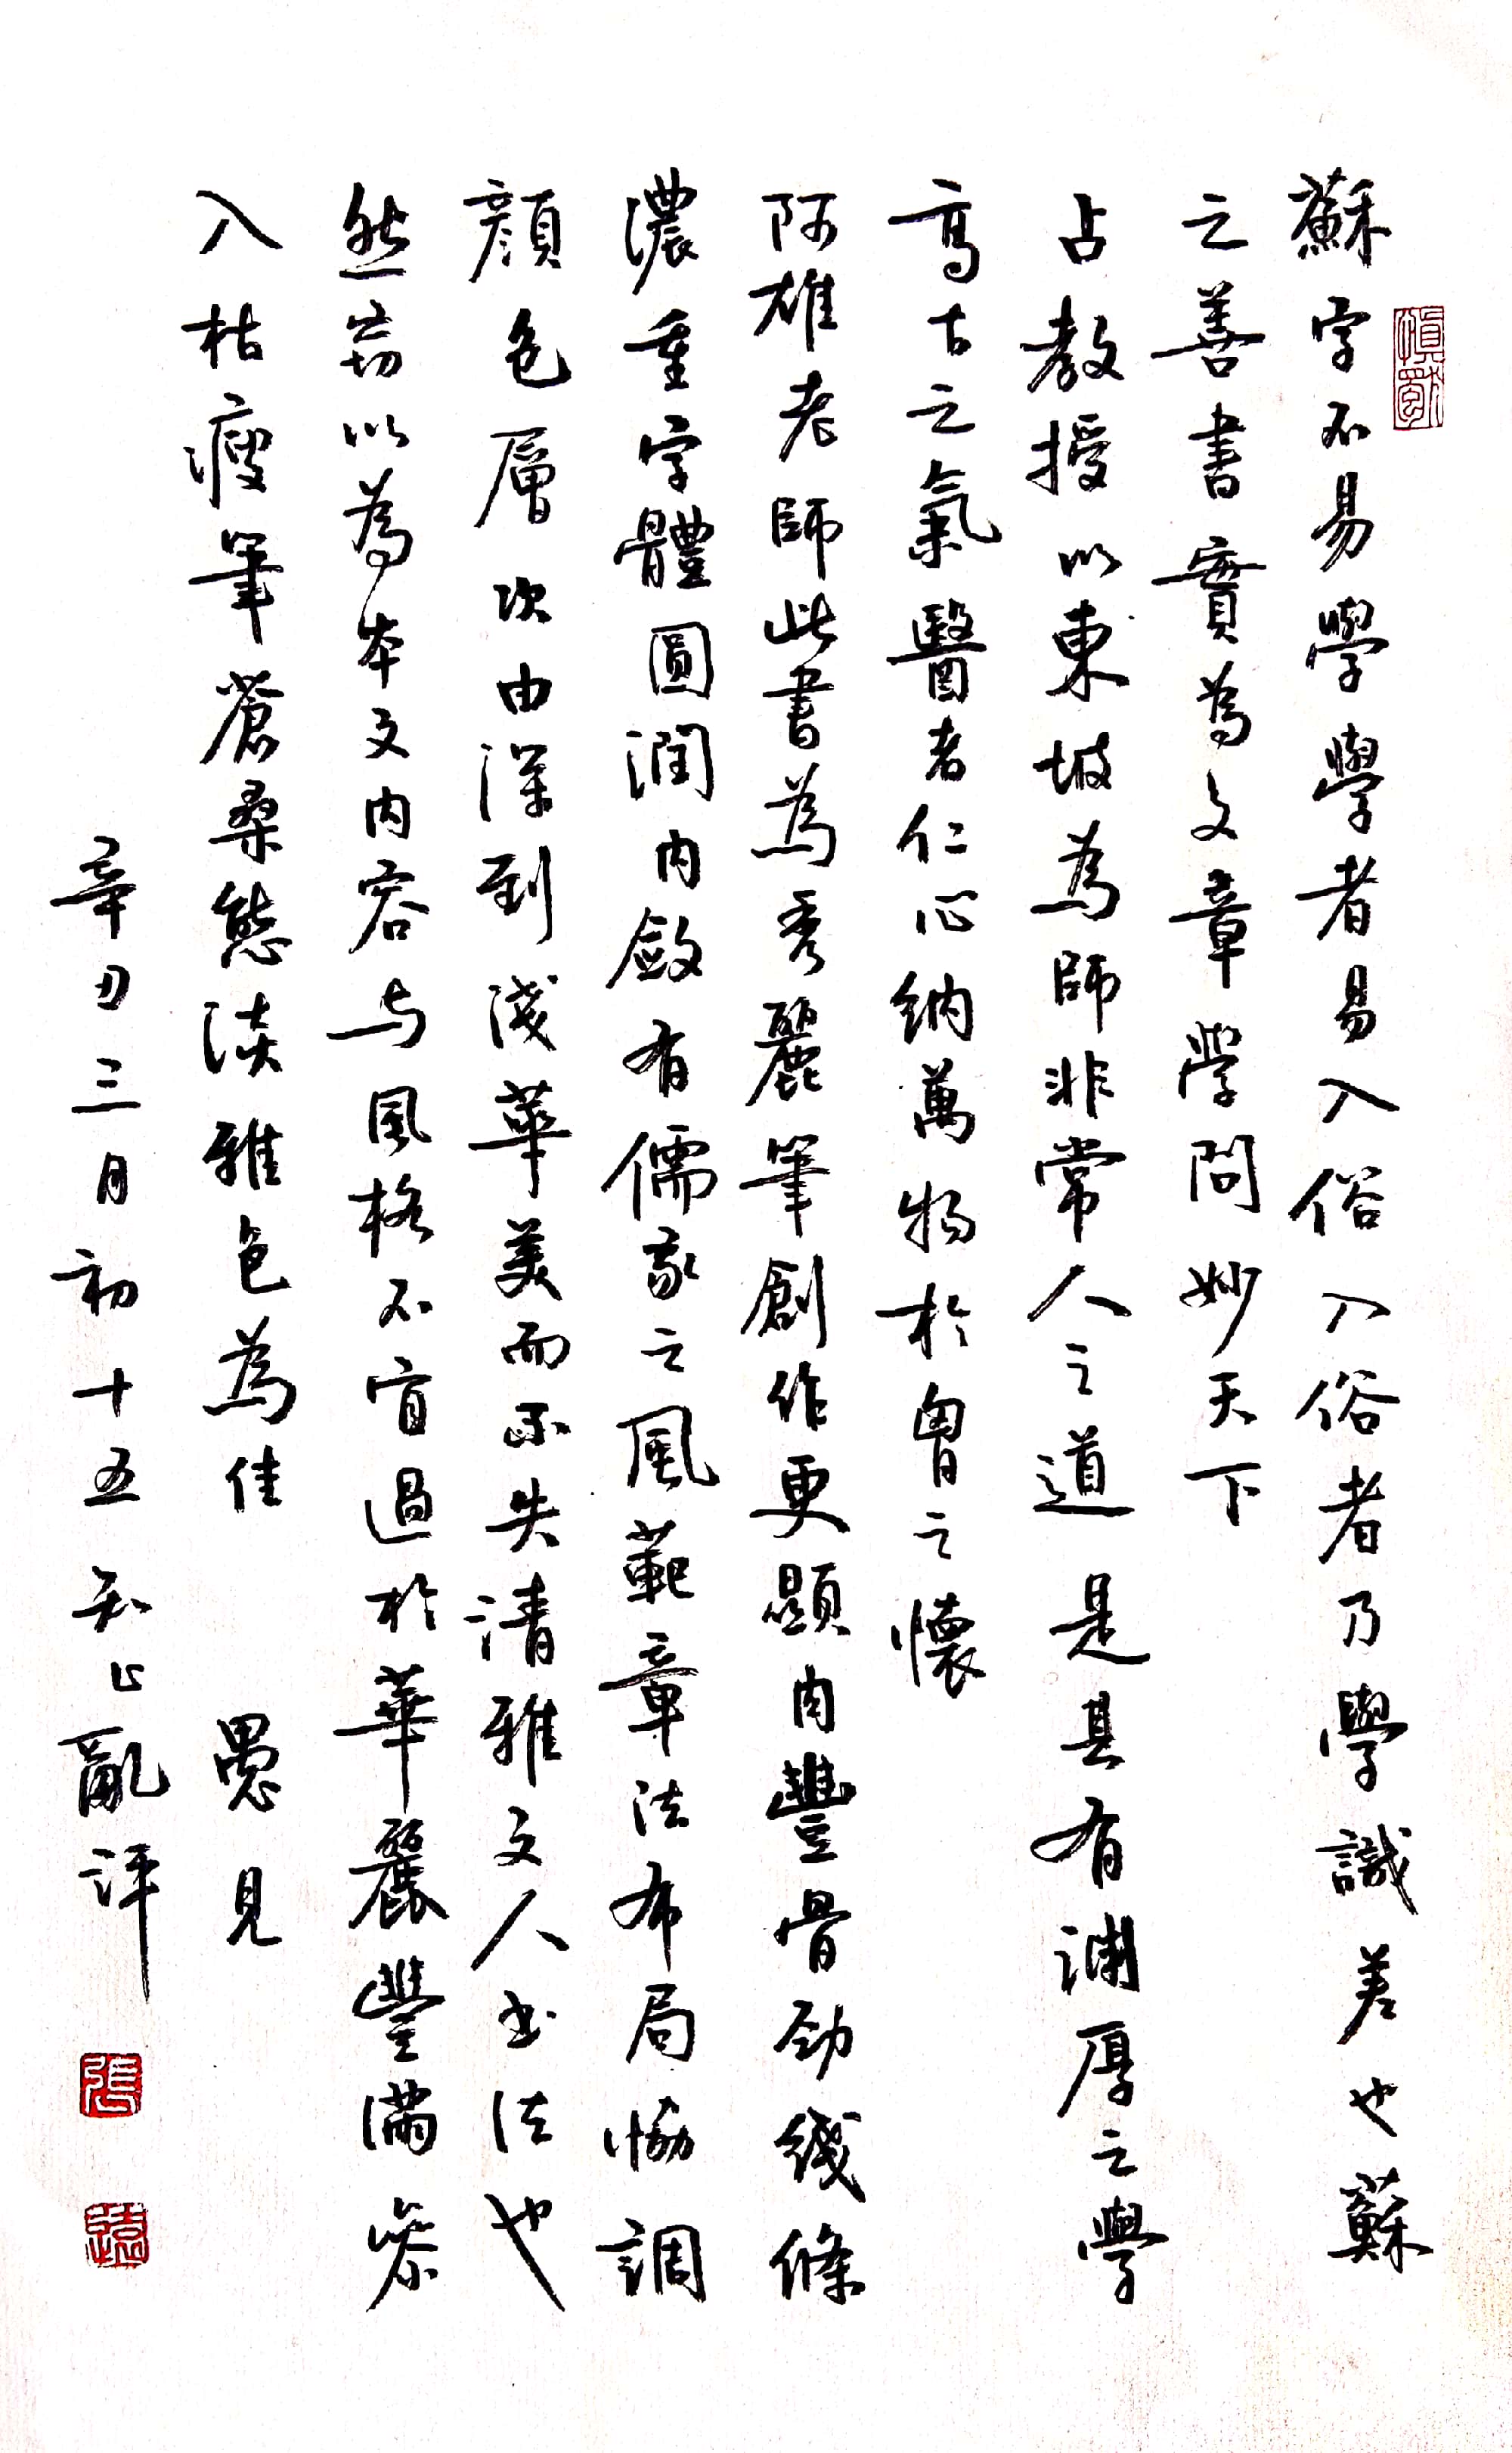 蘇字不易學學者易入俗入俗者乃學識差也蘇
之善書實為文章學問妙天下
占教授以東坡為師非常人之道是具有淵厚之學
高古之氣醫者仁心納萬物於胷之懷
阿雄老師此書為秀麗筆創作更顯肉豐骨勁綫條
濃重字體圓潤内斂有儒家之風範章法布局協調
顏色層次由深到淺華美而不失清雅文人书法也
然窃以為本文内容与風格不宜過於華麗豐滿參
入枯瘦筆蒼桑態淡雅色為佳愚見
辛丑三月初十五知止亂評
張
遠